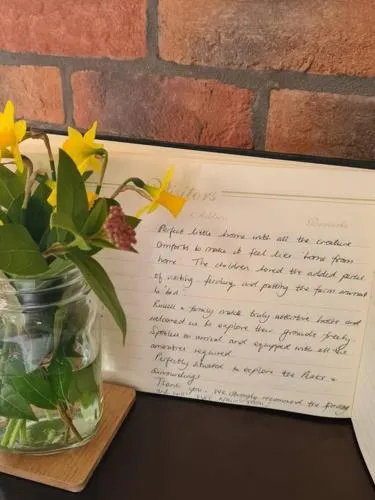 Visitors
Address
Comments
Perfect little home with all the creature
comforts to make it feel like home from
home. The children loved the added perks
of visiting, feeding, and petting the farm animals
to bed
& family made truly attentive hosts and
welcomed us to explore their grounds freely
Spotless on arrival and equipped with all the
amenities required.
Perfectly situated to explore the Peaks &
surroundings
Thank you. We strongly recommend the